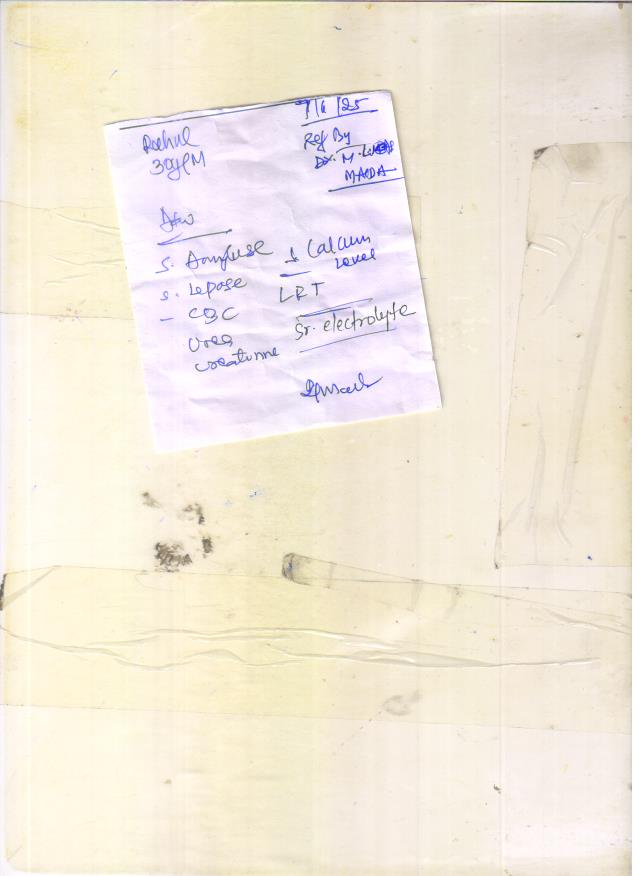 7/6/25
Rahul
30y/M
Ref By
Dr. M.
Adv
S. Aamyluse
S. Lepase
- CBC
Urea
creatinine
S Calcium
Level
LRT
Sr. electrolyte